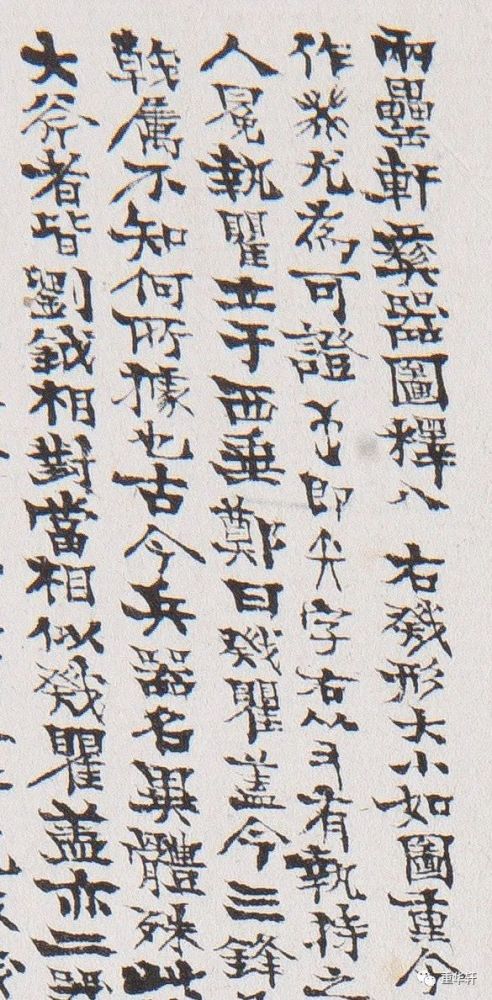 兩罍軒彝器圖釋八 右戣形大小如圖重今
作尤爲可證即字右从又有執持之
人冕執瞿立于西垂鄭曰戣瞿蓋今三鋒
戟屬不知何所據也古今兵器名異體殊此
大斧者皆劉鉞相對當相似戣瞿蓋亦二器
重华轩